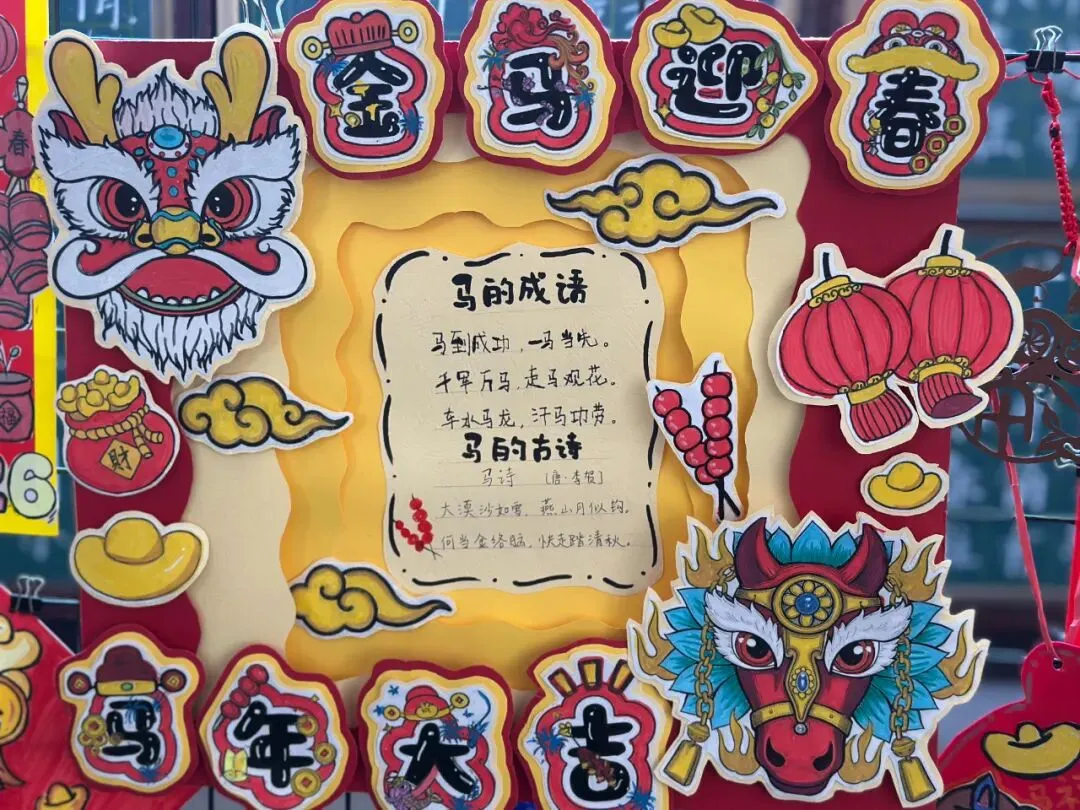 金马迎春
马的成语
马到成功，一马当先。
千军万马，走马观花。
车水马龙，汗马功劳。
马的古诗
马诗 [唐·李贺]
大漠沙如雪，燕山月似钩。
何当金络脑，快走踏清秋。
财
春
福
26
马年大吉